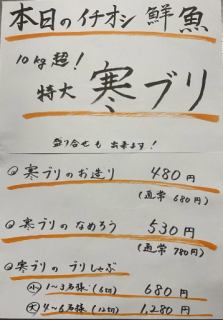 本日のイチオシ鮮魚
10kg超!
特大 寒ブリ
盛り合せも出来ます!
◎寒ブリのお造り 480円
(通常 680円)
◎寒ブリのなめろう 530円
(通常 780円)
◎寒ブリのブリしゃぶ
小 1~3名様(6切) 680円
大 4~6名様(12切) 1,280円